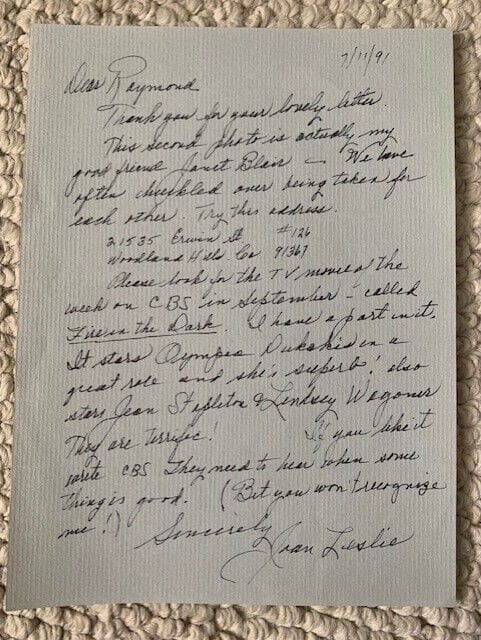 7/11/91
Dear Raymond
Thank you for your lovely letter.
This second photo is actually my
good friend Janet Blair – We have
often chuckled over being taken for
each other. Try this address.
21535 Erwin St #126
Woodland Hills Ca 91367
Please look for the TV movie of the
week on CBS in September – called
Fire in the Dark. I have a part in it.
It stars Olympia Dukakis in a
great role and she's superb! also
stars Jean Stapleton & Lindsey Wagoner
They are terrific! If you like it
write CBS They need to hear when some
thing is good. (Bet you won't recognize
me!)
Sincerely
Joan Leslie